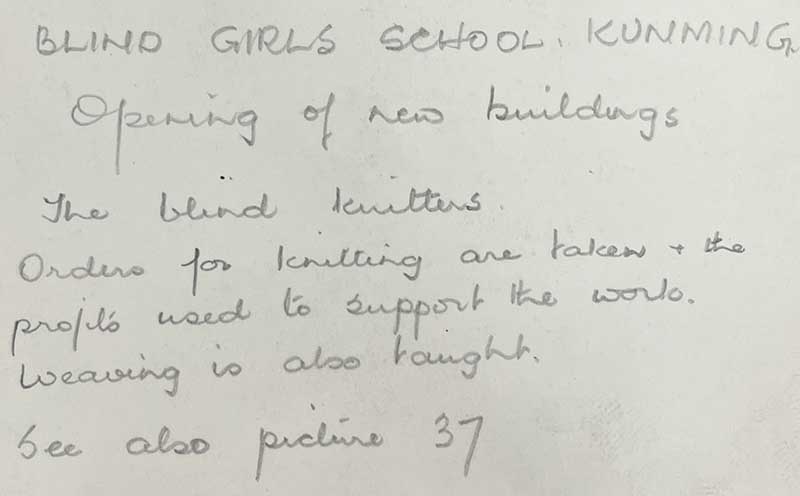 BLIND GIRLS SCHOOL. KUNMING
Opening of new buildings
The blind knitters.
Orders for knitting are taken + the
profits used to support the work.
Weaving is also taught.
See also picture 37